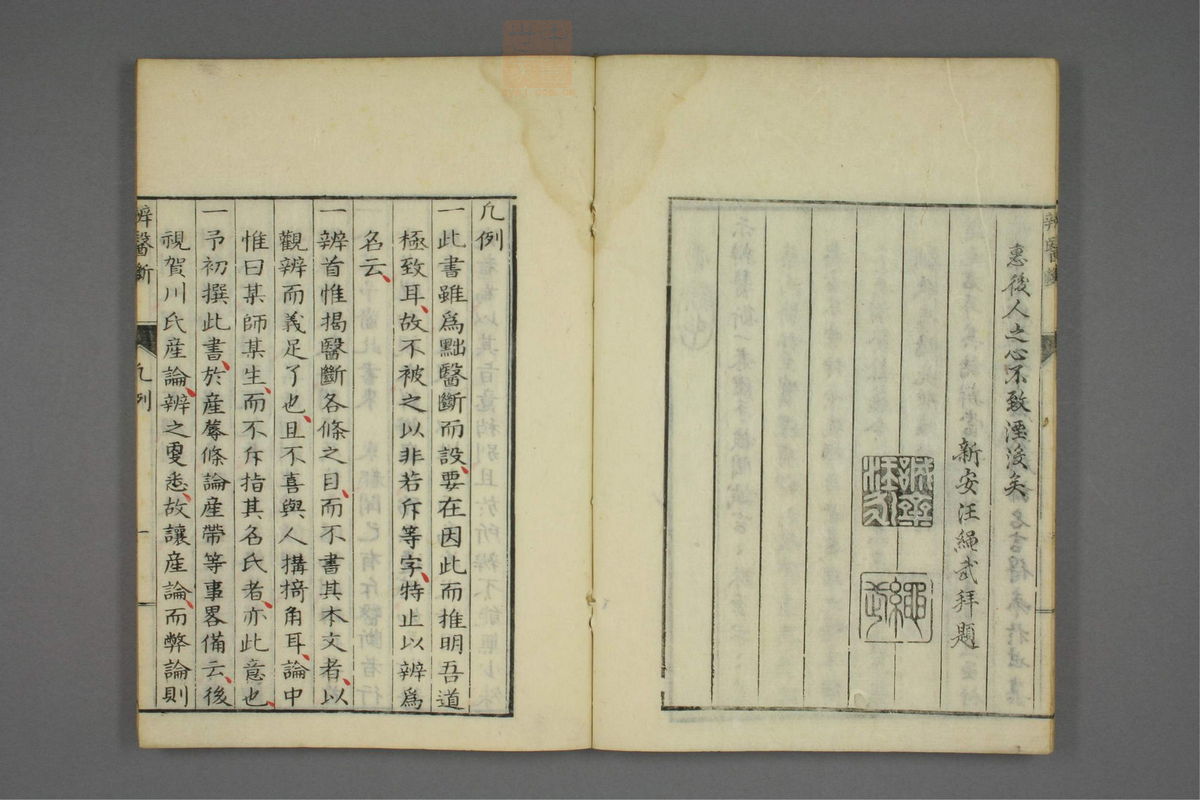 惠後人之心不致湮没矣
新安汪繩武拜題
繩武
辨醫斷
凡例
一此書雖爲黜醫斷而設要在因此而推明吾道
極致耳故不被之以非若斥等字特止以辨爲
名云
一辨首惟揭醫斷各條之目而不書其本文者以
觀辨而義足了也且不喜與人搆掎角耳論中
惟曰某師某生而不斥指其名氏者亦此意也
一予初撰此書於産蓐條論産帶等事畧備云後
視賀川氏産論辨之更悉故讓産論而弊論則
辨醫斷
凡例
一